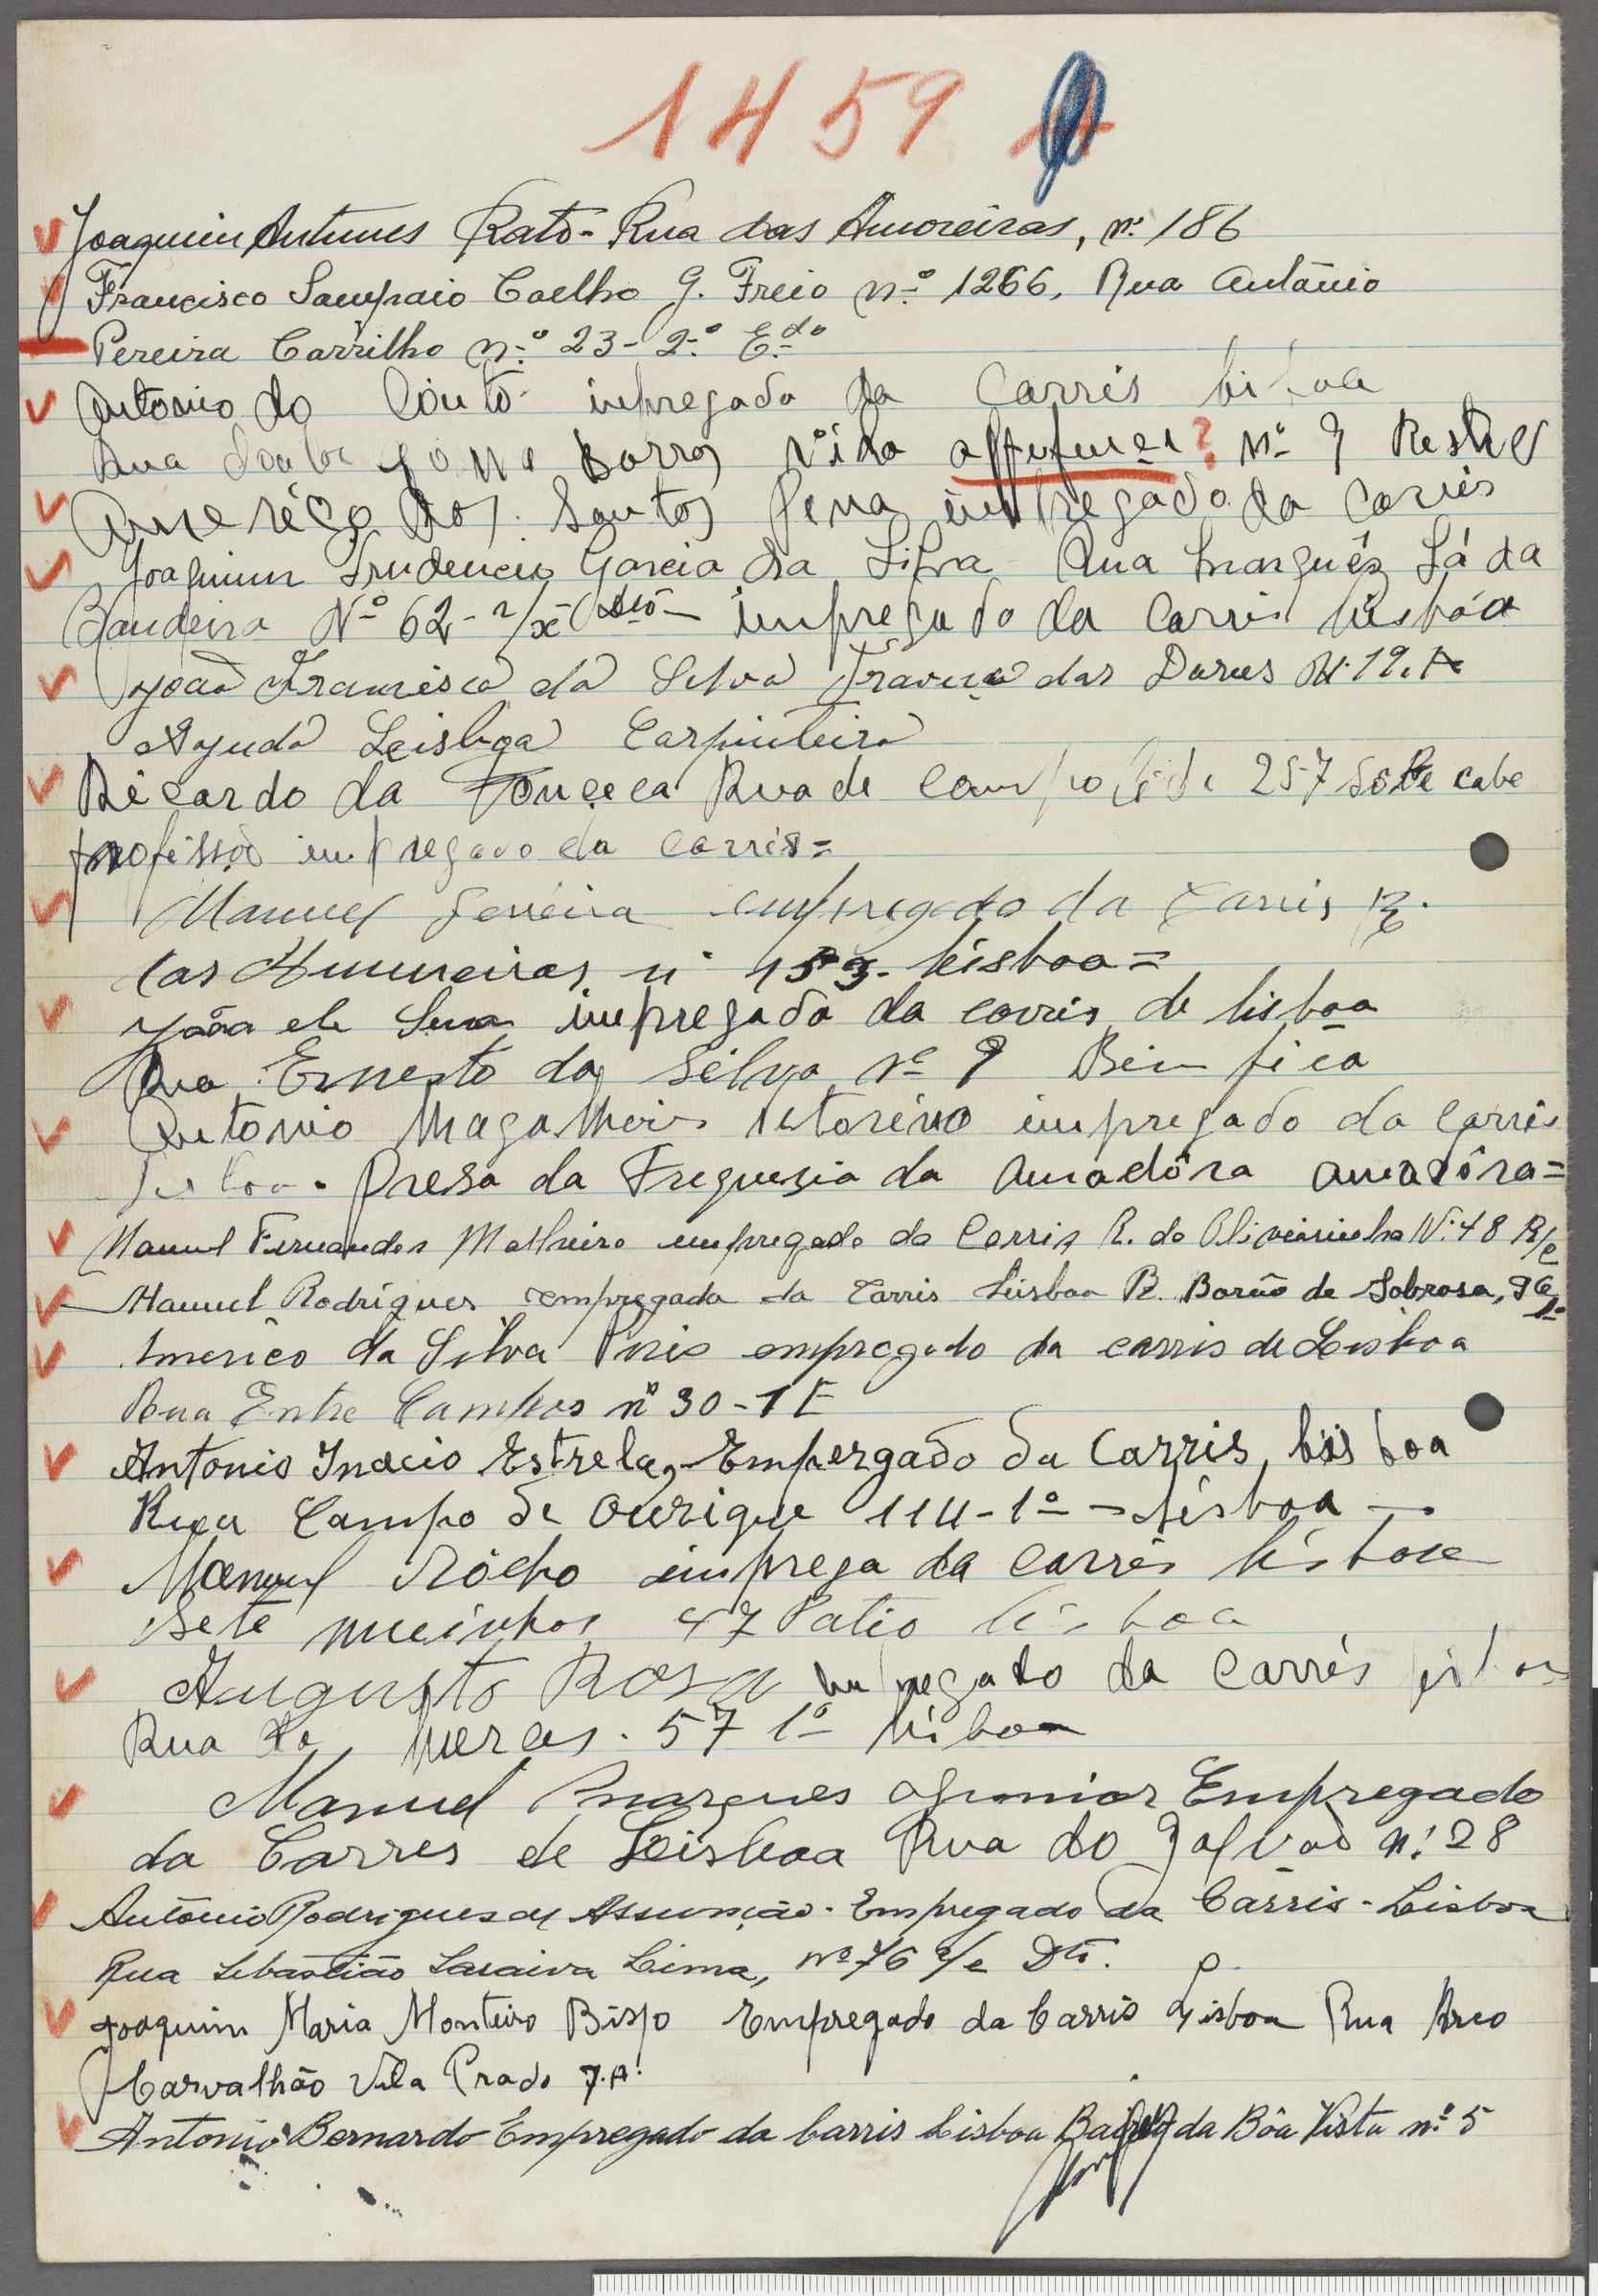 1459
Joaquim Antunes Rato - Rua das Amoreiras, nº 186
Francisco Sampaio Coelho G. Freio nº 1266, Rua António
Pereira Carrilho nº 23-2º E.do
Antonio do Couto impregado da Carris Lisboa
Rua Barros ? Nº 9
Americo dos Santos Pena impregado da Carris
Joaquim Prudencio Garcia da Silva Rua Marquês Sá da
Bandeira Nº 62 - impregado da Carris Lisbôa
João Francisco da Silva Traveça das Dores Nº 19. A
Ajuda Leisboa Carpinteiro
Ricardo da Fonçeca Rua de Campolide 257 cabe
profissão impregado da Carris =
Manuel Ferreira empregado da Carris R.
das Amureiras nº Lisboa =
João de impregado da Carris de Lisboa
Rua Ernesto da Silva Nº 9 Beinfica
Antonio Magalhais impregado da Carris
Lisboa. Presa da Freguesia da Amadôra Amadôra =
Manuel Fernandes Malheiro empregado da Carris R. da Oliveirinha Nº 48 R/c
Manuel Rodrigues empregado da Carris Leisboa R. Barão de Sobrosa, 96 1º
Americo da Silva Piris empregado da carris de Lesboa
Rua Entre Campos nº 30-1 E
Antonio Inacio Estrela, - Empergado da Carris, Lisboa
Rua Campo de Ourique 114-1º - Lisboa -
Manuel Rocho imprega da carris Lisboa
Sete mueinhos 47 Patio Lisboa
Augusto Rosa impregado da Carris Lisboa
Rua da Merces. 57 1º Lisboa
Manuel Marques Junior Empregado
da Carres de Leisboa Rua do Galvão nº 28
António Rodrigues de Assunção - Empregado da Carris - Lisboa
Rua Sebastião Saraiva Lima, Nº 76 r/c Dtº.
Joaquim Maria Monteiro Bispo Empregado da Carris Lisboa Rua Arco
Carvalhão Vila Prado 7. A.
Antonio Bernardo Empregado da Carris Lisboa Bairro da Bôa Vista nº 5